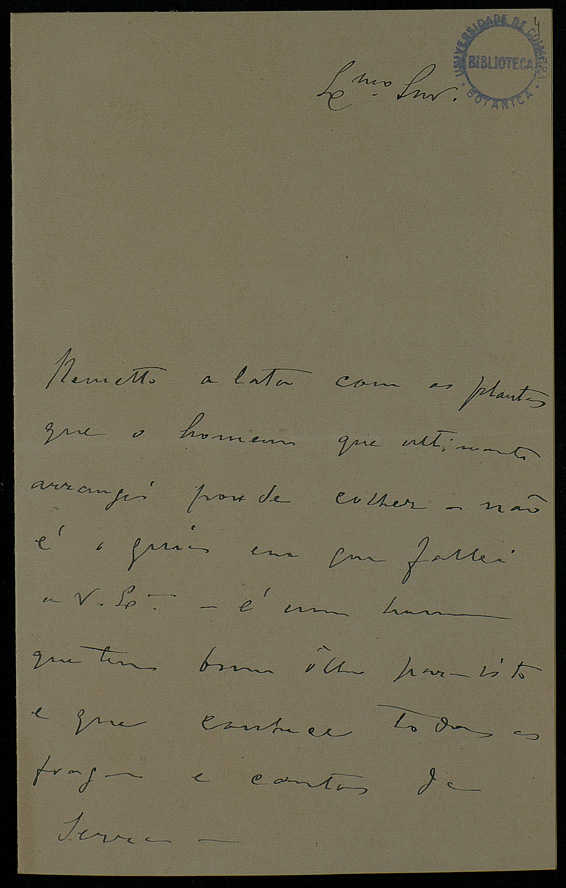 4
UNIVERSIDADE DE COIMBRA
BIBLIOTECA
BOTANICA
Exmo Snr.
Remetto a lata com as plantas
que o homem que ultimamente
arrangei poude colher – não
é o guia em que fallei
a V. Exa – é um homem
que tem bom ôlho para isto
e que conhece todas as
fragas e cantos da
Serra –